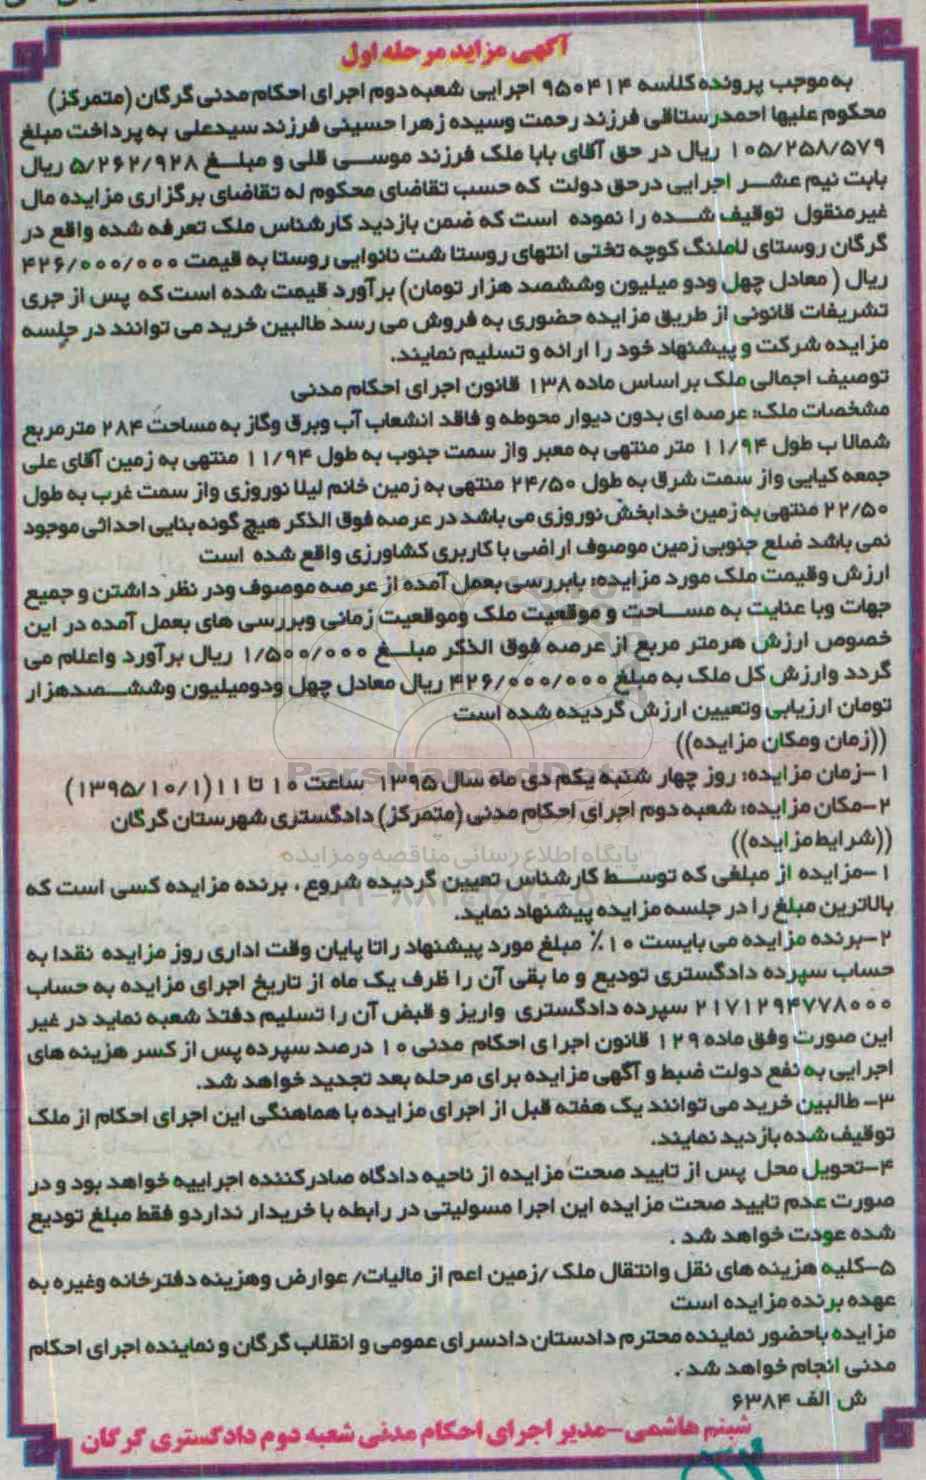 آگهی مزاید مرحله اول
به موجب پرونده کلاسه ۹۵۰۴۱۴ اجرایی شعبه دوم اجرای احکام مدنی گرگان (متمرکز)
محکوم علیها احمدرستاقی فرزند رحمت وسیده زهرا حسینی فرزند سیدعلی به پرداخت مبلغ
۱۰۵/۲۵۸/۵۷۹ ریال در حق آقای بابا ملک فرزند موسی قلی و مبلغ ۵/۲۶۲/۹۲۸ ریال
بابت نیم عشر اجرایی درحق دولت که حسب تقاضای محکوم له تقاضای برگزاری مزایده مال
غیرمنقول توقیف شده را نموده است که ضمن بازدید کارشناس ملک تعرفه شده واقع در
گرگان روستای لاملنگ کوچه تختی انتهای روستا شت نانوایی روستا به قیمت ۴۲۶/۰۰۰/۰۰۰
ریال ( معادل چهل ودو میلیون وششصد هزار تومان) برآورد قیمت شده است که پس از جری
تشریفات قانونی از طریق مزایده حضوری به فروش می رسد طالبین خرید می توانند در جلسه
مزایده شرکت و پیشنهاد خود را ارائه و تسلیم نمایند.
توصیف اجمالی ملک براساس ماده ۱۳۸ قانون اجرای احکام مدنی
مشخصات ملک: عرصه ای بدون دیوار محوطه و فاقد انشعاب آب وبرق وگاز به مساحت ۲۸۴ مترمربع
شمالا ب طول ۱۱/۹۴ متر منتهی به معبر واز سمت جنوب به طول ۱۱/۹۴ منتهی به زمین آقای علی
جمعه کیایی واز سمت شرق به طول ۲۴/۵۰ منتهی به زمین خانم لیلا نوروزی واز سمت غرب به طول
۲۲/۵۰ منتهی به زمین خدابخش نوروزی می باشد در عرصه فوق الذکر هیچ گونه بنایی احداثی موجود
نمی باشد ضلع جنوبی زمین موصوف اراضی با کاربری کشاورزی واقع شده است
ارزش وقیمت ملک مورد مزایده: بابررسی بعمل آمده از عرصه موصوف ودر نظر داشتن و جمیع
جهات وبا عنایت به مساحت و موقعیت ملک وموقعیت زمانی وبررسی های بعمل آمده در این
خصوص ارزش هرمتر مربع از عرصه فوق الذکر مبلغ ۱/۵۰۰/۰۰۰ ریال برآورد واعلام می
گردد وارزش کل ملک به مبلغ ۴۲۶/۰۰۰/۰۰۰ ریال معادل چهل ودومیلیون وششصدهزار
تومان ارزیابی وتعیین ارزش گردیده شده است
((زمان ومکان مزایده))
۱-زمان مزایده: روز چهار شنبه یکم دی ماه سال ۱۳۹۵ ساعت ۱۰ تا ۱۱ (۱۳۹۵/۱۰/۱)
ParsNamadData
۲-مکان مزایده: شعبه دوم اجرای احکام مدنی (متمرکز) دادگستری شهرستان گرگان
((شرایط مزایده))
پایگاه اطلاع رسانی مناقصه ومزایده
۱-مزایده از مبلغی که توسط کارشناس تعیین گردیده شروع ، برنده مزایده کسی است که
بالاترین مبلغ را در جلسه مزایده پیشنهاد نماید.
۲-برنده مزایده می بایست ۱۰٪ مبلغ مورد پیشنهاد راتا پایان وقت اداری روز مزایده نقدا به
حساب سپرده دادگستری تودیع و ما بقی آن را ظرف یک ماه از تاریخ اجرای مزایده به حساب
۲۱۷۱۲۹۴۷۷۸۰۰۰ سپرده دادگستری واریز و قبض آن را تسلیم دفتذ شعبه نماید در غیر
این صورت وفق ماده ۱۲۹ قانون اجرا ی احکام مدنی ۱۰ درصد سپرده پس از کسر هزینه های
اجرایی به نفع دولت ضبط و آگهی مزایده برای مرحله بعد تجدید خواهد شد.
۳- طالبین خرید می توانند یک هفته قبل از اجرای مزایده با هماهنگی این اجرای احکام از ملک
توقیف شده بازدید نمایند.
۴-تحویل محل پس از تایید صحت مزایده از ناحیه دادگاه صادرکننده اجراییه خواهد بود و در
صورت عدم تایید صحت مزایده این اجرا مسولیتی در رابطه با خریدار نداردو فقط مبلغ تودیع
شده عودت خواهد شد .
۵-کلیه هزینه های نقل وانتقال ملک /زمین اعم از مالیات/ عوارض وهزینه دفترخانه وغیره به
عهده برنده مزایده است
مزایده باحضور نماینده محترم دادستان دادسرای عمومی و انقلاب گرگان و نماینده اجرای احکام
مدنی انجام خواهد شد .
ش الف ۶۳۸۴
شبنم هاشمی-مدیر اجرای احکام مدنی شعبه دوم دادگستری گرگان